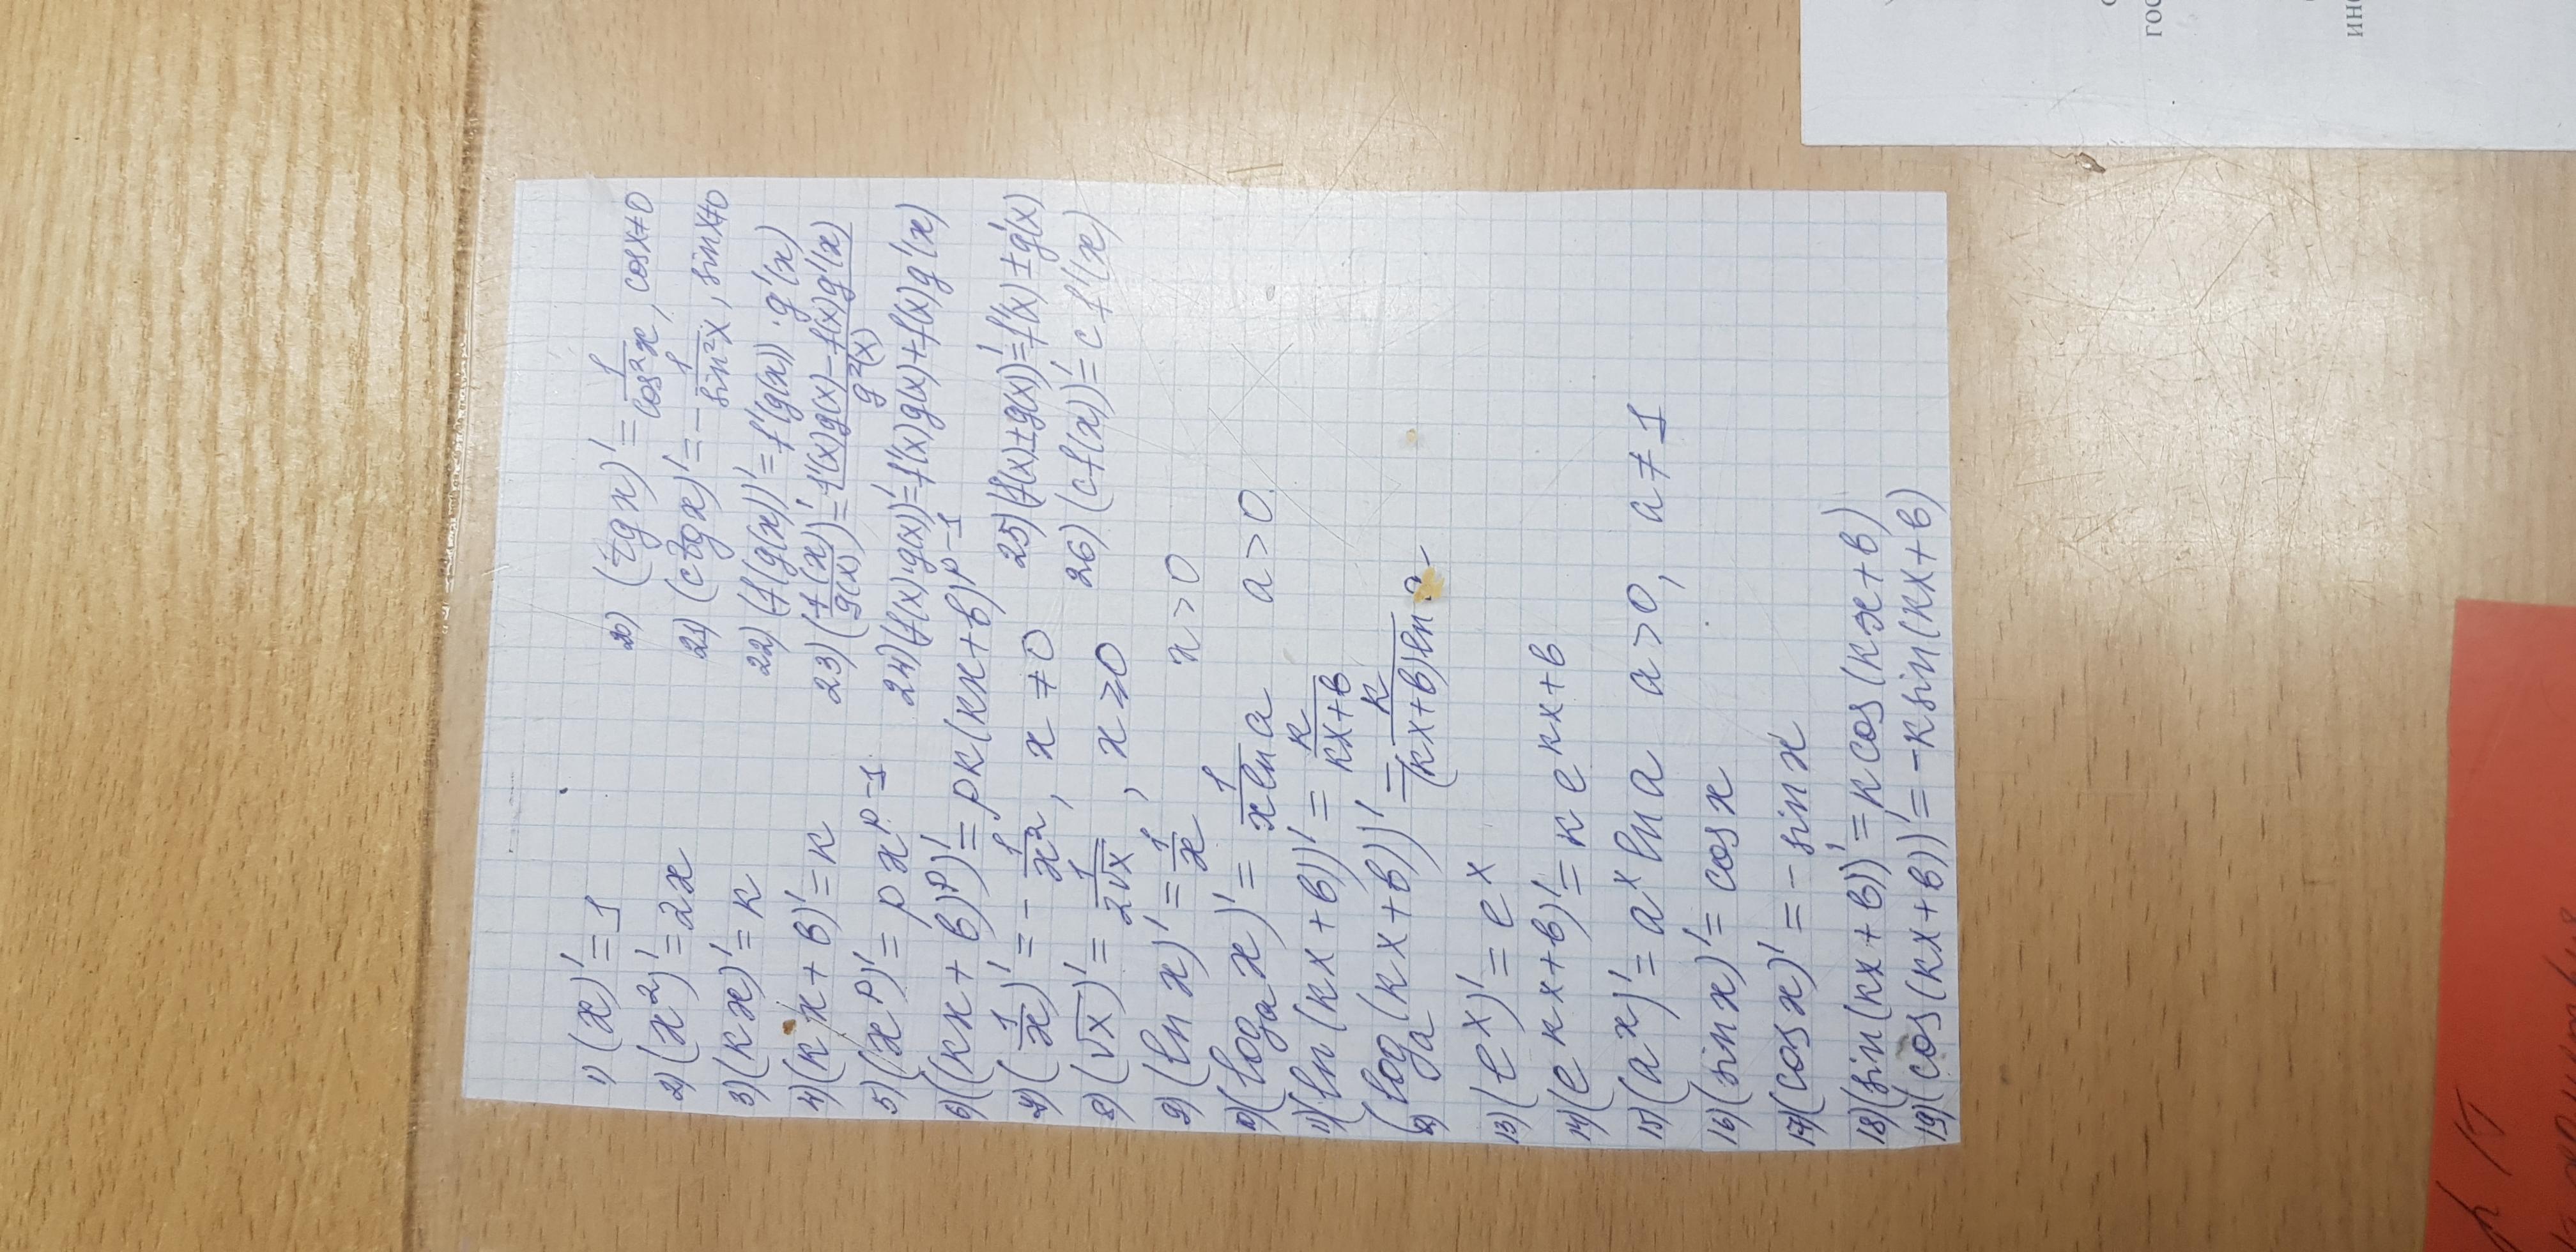 1) (x)' = 1
2) (x²)' = 2x
3) (кx)' = к
4) (кx + в)' = к
5) (x^p)' = p x^(p-1)
6) ((кx + в)^p)' = pк(кx + в)^(p-1)
7) (1/x)' = - 1/x², x ≠ 0
8) (√x)' = 1/(2√x), x ⩾ 0
9) (ln x)' = 1/x x > 0
10) (log_a x)' = 1/(x ln a) a > 0
11) (ln (кx + в))' = к/(кx + в)
12) (log_a (кx + в))' = к/((кx + в) ln a)
13) (e^x)' = e^x
14) (e^(кx + в))' = к e^(кx + в)
15) (a^x)' = a^x ln a a > 0, a ≠ 1
16) (sin x)' = cos x
17) (cos x)' = - sin x
18) (sin (кx + в))' = к cos (кx + в)
19) (cos (кx + в))' = - к sin (кx + в)
20) (tg x)' = 1/cos²x, cos x ≠ 0
21) (ctg x)' = - 1/sin²x, sin x ≠ 0
22) (f(g(x)))' = f'(g(x)) · g'(x)
23) (f(x)/g(x))' = (f'(x)g(x) - f(x)g'(x))/g²(x)
24) (f(x)·g(x))' = f'(x)g(x) + f(x)g'(x)
25) (f(x) ± g(x))' = f'(x) ± g'(x)
26) (cf(x))' = c f'(x)
гос